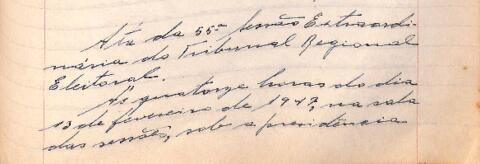 Ata da 55ª sessão Extraordi-
nária do Tribunal Regional
Eleitoral.
Às quatorze horas do dia
13 de fevereiro de 1947, na sala
das sessões, sob a presidência